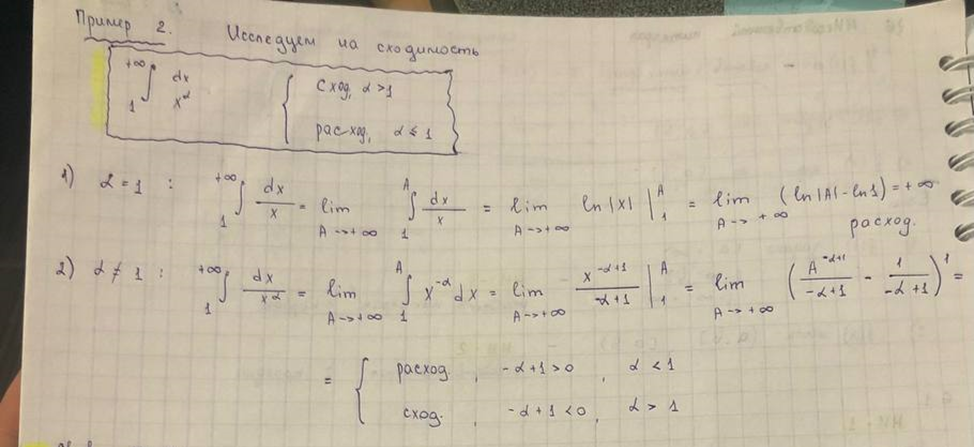 Пример 2. Исследуем на сходимость
+∞ ∫ 1 dx / x^α { сход, α > 1
расход, α ≤ 1
1) α = 1 : +∞ ∫ 1 dx / x = lim A→+∞ A ∫ 1 dx / x = lim A→+∞ ln|x| | A 1 = lim A→+∞ (ln|A| - ln1) = +∞
расход.
2) α ≠ 1 : +∞ ∫ 1 dx / x^α = lim A→+∞ A ∫ 1 x^-α dx = lim A→+∞ x^-α+1 / -α+1 | A 1 = lim A→+∞ (A^-α+1 / -α+1 - 1 / -α+1)^1 =
= { расход. , -α+1 > 0 , α < 1
сход. -α+1 < 0, α > 1